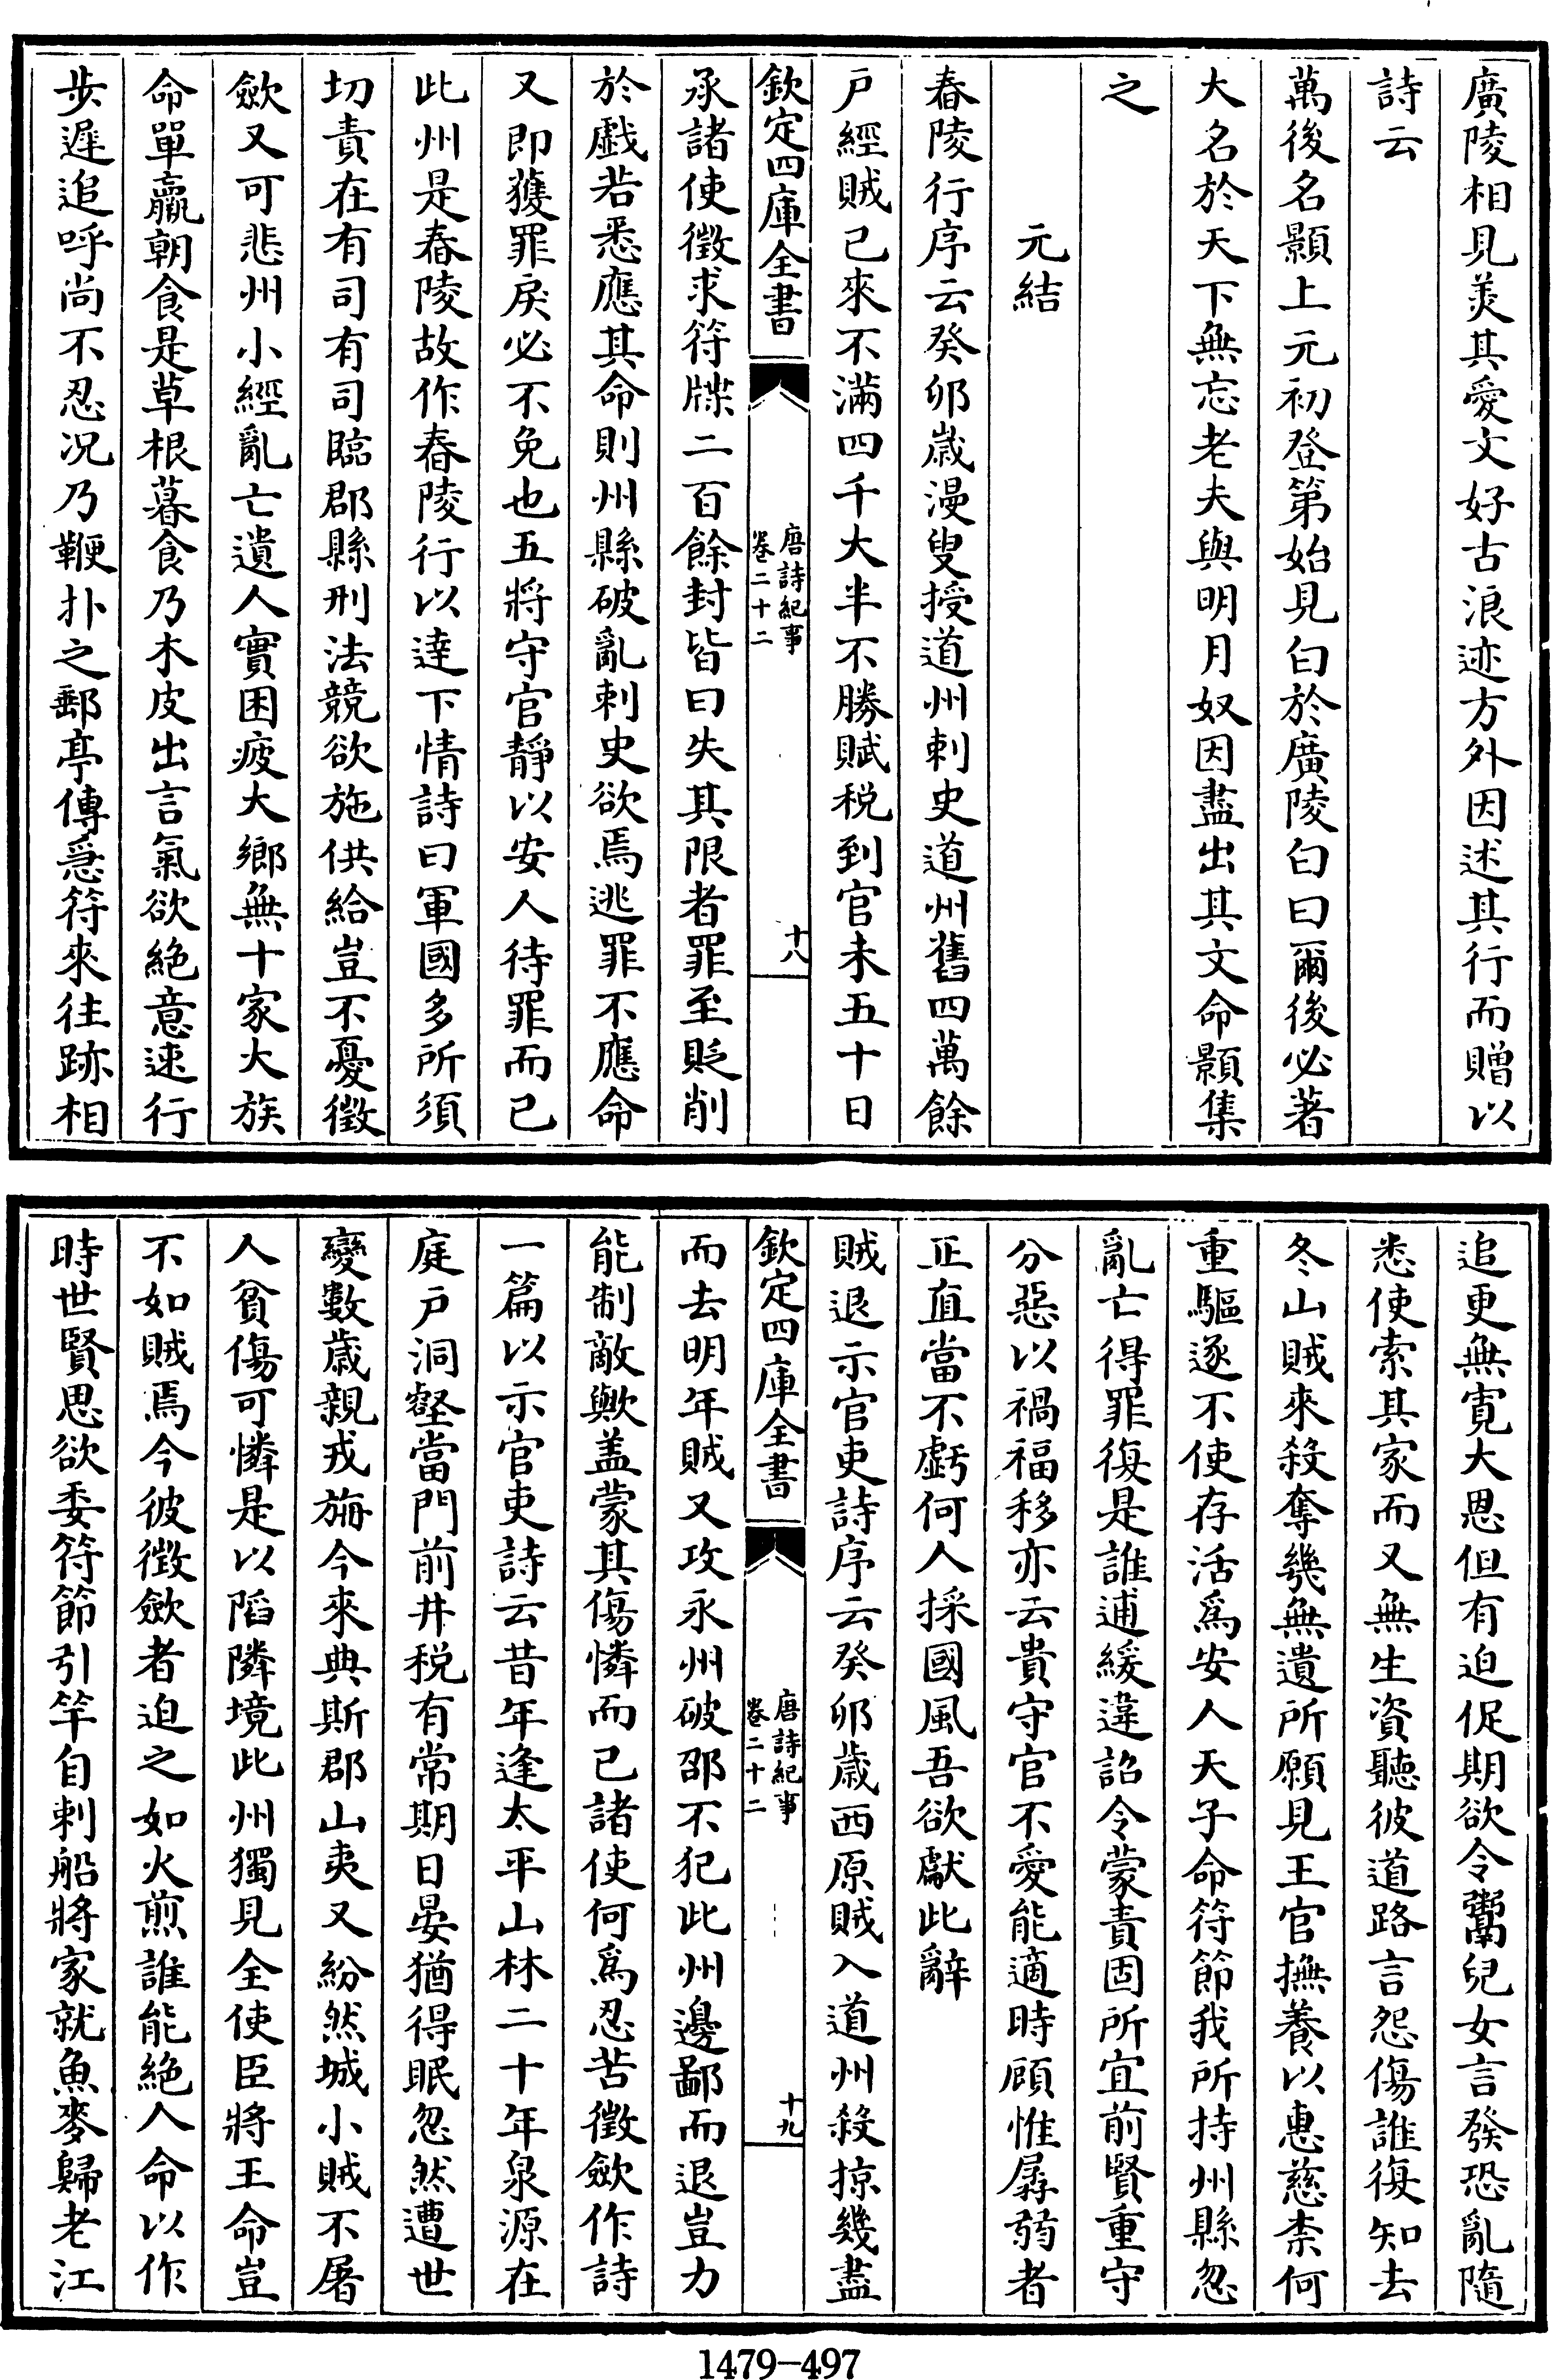 廣陵相見羙其愛文好古浪迹方外因述其行而贈以
詩云
萬後名顥上元初登第始見白於廣陵白曰爾後必著
大名於天下無忘老夫與明月奴因盡出其文命顥集
之
元結
舂陵行序云癸卯歲漫叟授道州刺史道州舊四萬餘
戶經賊已來不滿四千大半不勝賦税到官未五十日
欽定四庫全書
唐詩紀事
卷二十二
十八
承諸使徵求符牒二百餘封皆曰失其限者罪至貶削
於戲若悉應其命則州縣破亂刺史欲焉逃罪不應命
又即獲罪戾必不免也五將守官靜以安人待罪而已
此州是舂陵故作舂陵行以逹下情詩曰軍國多所須
切責在有司有司臨郡縣刑法競欲施供給豈不憂徵
歛又可悲州小經亂亡遺人實困疲大鄉無十家大族
命單羸朝食是草根暮食乃木皮出言氣欲絶意速行
步遲追呼尚不忍况乃鞭扑之郵亭傳急符來往跡相
追更無寛大恩但有迫促期欲令鬻兒女言發恐亂隨
悉使索其家而又無生資聽彼道路言怨傷誰復知去
冬山賊來殺奪幾無遺所願見王官撫養以惠慈柰何
重驅逐不使存活爲安人天子命符節我所持州縣忽
亂亡得罪復是誰逋緩違詔令蒙責固所宜前賢重守
分惡以禍福移亦云貴守官不愛能適時顧惟孱弱者
正直當不虧何人採國風吾欲獻此辭
賊退示官吏詩序云癸卯歲西原賊入道州殺掠幾盡
欽定四庫全書
唐詩紀事
卷二十二
十九
而去明年賊又攻永州破邵不犯此州邊鄙而退豈力
能制敵歟盖蒙其傷憐而已諸使何爲忍苦徵歛作詩
一篇以示官吏詩云昔年逢太平山林二十年泉源在
庭戶洞壑當門前井税有常期日晏猶得眠忽然遭世
變數歲親戎旃今來典斯郡山夷又紛然城小賊不屠
人貧傷可憐是以陷隣境此州獨見全使臣將王命豈
不如賊焉今彼徴歛者迫之如火煎誰能絶人命以作
時世賢思欲委符節引竿自刺船將家就魚麥歸老江
1479-497